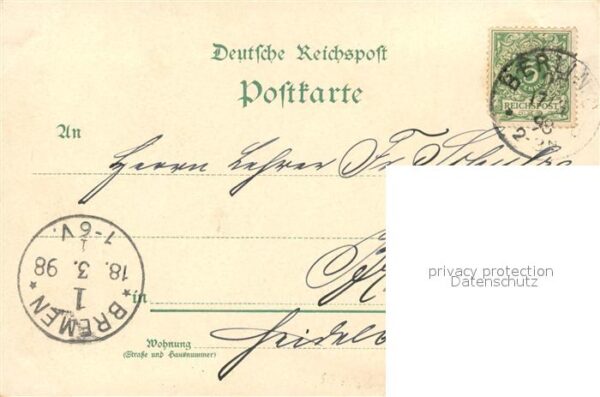 Deutsche Reichspost
Postkarte
5
REICHSPOST
BERLIN
An
Herrn Lehrer Fr. Schulze
BREMEN
1
18. 3. 98
1-6V.
in
privacy protection
Datenschutz
Wohnung
(Straße und Hausnummer)
Heidel